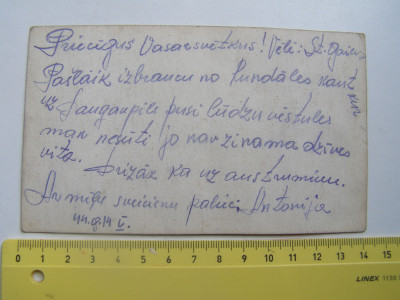 Priecīgus Vasarsvētkus! Vēlē: St.
Paštāik izbraucu no Rundāles kaut kur
uz Daugavpils pusi lūdzu vēstules
man nesūti jo nav zināma dzīves
vita. Drīzāk kā uz austrumiem.
Ar mīļu sveicienu palieku Antonija
44. g. 14 V.
0 1 2 3 4 5 6 7 8 9 10 11 12 13 14 15
LINEX